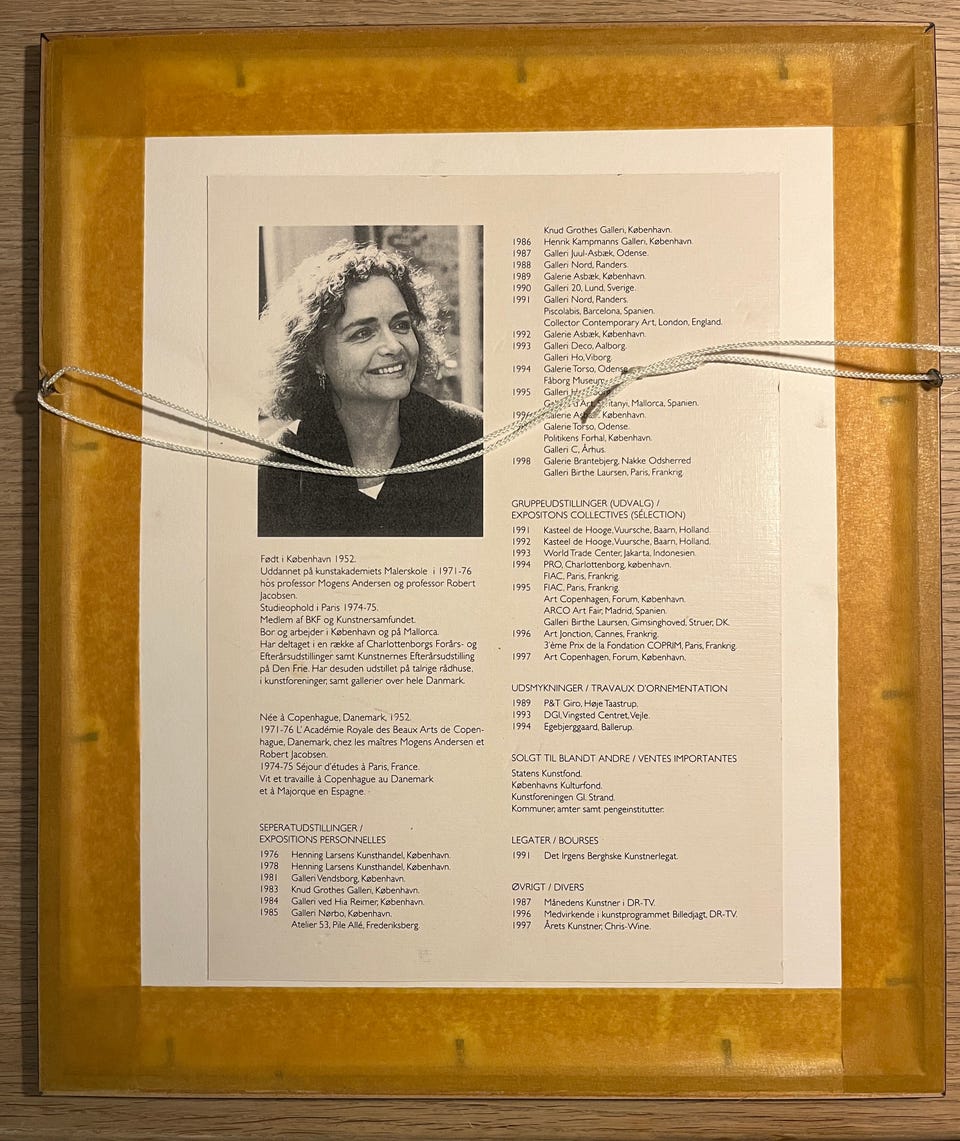 Født i København 1952.
Uddannet på kunstakademiets Malerskole i 1971-76
hos professor Mogens Andersen og professor Robert
Jacobsen.
Studieophold i Paris 1974-75.
Medlem af BKF og Kunstnersamfundet.
Bor og arbejder i København og på Mallorca.
Har deltaget i en række af Charlottenborgs Forårs- og
Efterårsudstillinger samt Kunstnernes Efterårsudstilling
på Den Frie. Har desuden udstillet på talrige rådhuse,
i kunstforeninger, samt gallerier over hele Danmark.
Née à Copenhague, Danemark, 1952.
1971-76 L'Académie Royale des Beaux Arts de Copen-
hague, Danemark, chez les maîtres Mogens Andersen et
Robert Jacobsen.
1974-75 Séjour d'études à Paris, France.
Vit et travaille à Copenhague au Danemark
et à Majorque en Espagne.
SEPERATUDSTILLINGER /
EXPOSITIONS PERSONNELLES
1976 Henning Larsens Kunsthandel, København.
1978 Henning Larsens Kunsthandel, København.
1981 Galleri Vendsborg, København.
1983 Knud Grothes Galleri, København.
1984 Galleri ved Hia Reimer, København.
1985 Galleri Nørbo, København.
Atelier 53, Pile Allé, Frederiksberg.
Knud Grothes Galleri, København.
1986 Henrik Kampmanns Galleri, København.
1987 Galleri Juul-Asbæk, Odense.
1988 Galleri Nord, Randers.
1989 Galerie Asbæk, København.
1990 Galleri 20, Lund, Sverige.
1991 Galleri Nord, Randers.
Piscolabis, Barcelona, Spanien.
Collector Contemporary Art, London, England.
1992 Galerie Asbæk, København.
1993 Galleri Deco, Aalborg.
Galleri Ho, Viborg.
1994 Galerie Torso, Odense
Fåborg Museum
1995 Galleri
d'Art, Mallorca, Spanien.
1996 Galerie København.
Galerie Torso, Odense.
Politikens Forhal, København.
Galleri C, Århus.
1998 Galerie Brantebjerg, Nakke Odsherred
Galleri Birthe Laursen, Paris, Frankrig.
GRUPPEUDSTILLINGER (UDVALG) /
EXPOSITONS COLLECTIVES (SÉLECTION)
1991 Kasteel de Hooge, Vuursche, Baarn, Holland.
1992 Kasteel de Hooge, Vuursche, Baarn, Holland.
1993 World Trade Center, Jakarta, Indonesien.
1994 PRO, Charlottenborg, københavn.
FIAC, Paris, Frankrig.
1995 FIAC, Paris, Frankrig.
Art Copenhagen, Forum, København.
ARCO Art Fair, Madrid, Spanien.
Galleri Birthe Laursen, Gimsinghoved, Struer, DK.
1996 Art Jonction, Cannes, Frankrig.
3'éme Prix de la Fondation COPRIM, Paris, Frankrig.
1997 Art Copenhagen, Forum, København.
UDSMYKNINGER / TRAVAUX D'ORNEMENTATION
1989 P&T Giro, Høje Taastrup.
1993 DGI, Vingsted Centret, Vejle.
1994 Egebjerggaard, Ballerup.
SOLGT TIL BLANDT ANDRE / VENTES IMPORTANTES
Statens Kunstfond.
Københavns Kulturfond.
Kunstforeningen Gl. Strand.
Kommuner, amter samt pengeinstitutter.
LEGATER / BOURSES
1991 Det Irgens Berghske Kunstnerlegat.
ØVRIGT / DIVERS
1987 Månedens Kunstner i DR-TV.
1996 Medvirkende i kunstprogrammet Billedjagt, DR-TV.
1997 Årets Kunstner, Chris-Wine.